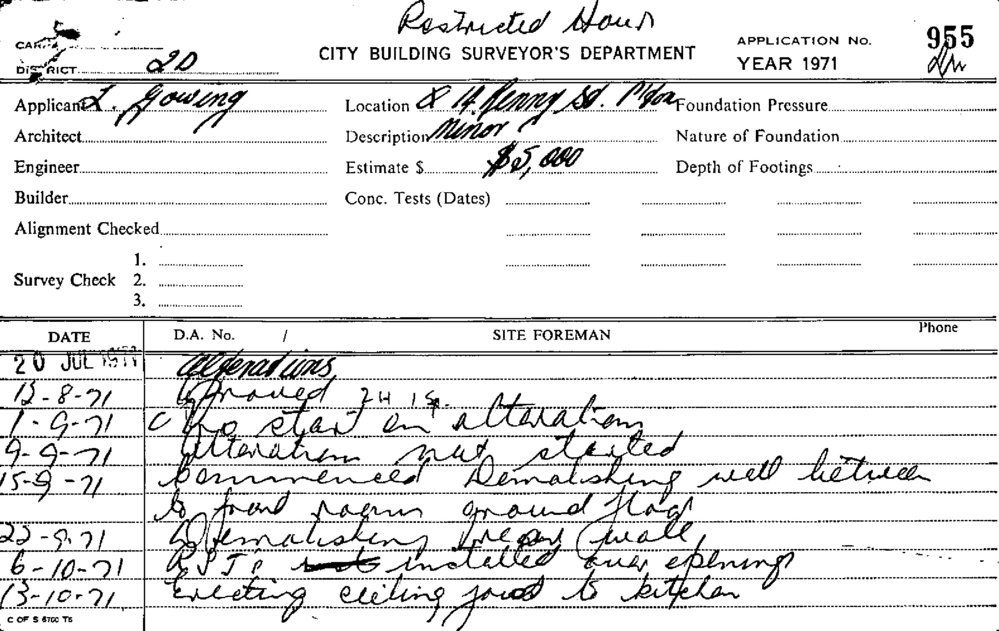 Restricted Hour
CARD
DISTRICT 2D
CITY BUILDING SURVEYOR'S DEPARTMENT
APPLICATION No. 955
YEAR 1971
Applicant L. Gowing
Location 8 14 Kenny St.
Foundation Pressure
Architect
Description Minor
Nature of Foundation
Engineer
Estimate $ $5,000
Depth of Footings
Builder
Conc. Tests (Dates)
Alignment Checked
Survey Check 1.
2.
3.
DATE D.A. No. / SITE FOREMAN Phone
20 JUL 1971 Alterations
12-8-71 Approved
1-9-71 No start on alteration
9-9-71 Alteration not started
15-9-71 Commenced Demolishing wall between
front rooms ground floor
22-9-71 Demolishing wall
6-10-71 R.S.J.s installed over openings
13-10-71 Erecting ceiling joist to kitchen
C OF S 6700 TS